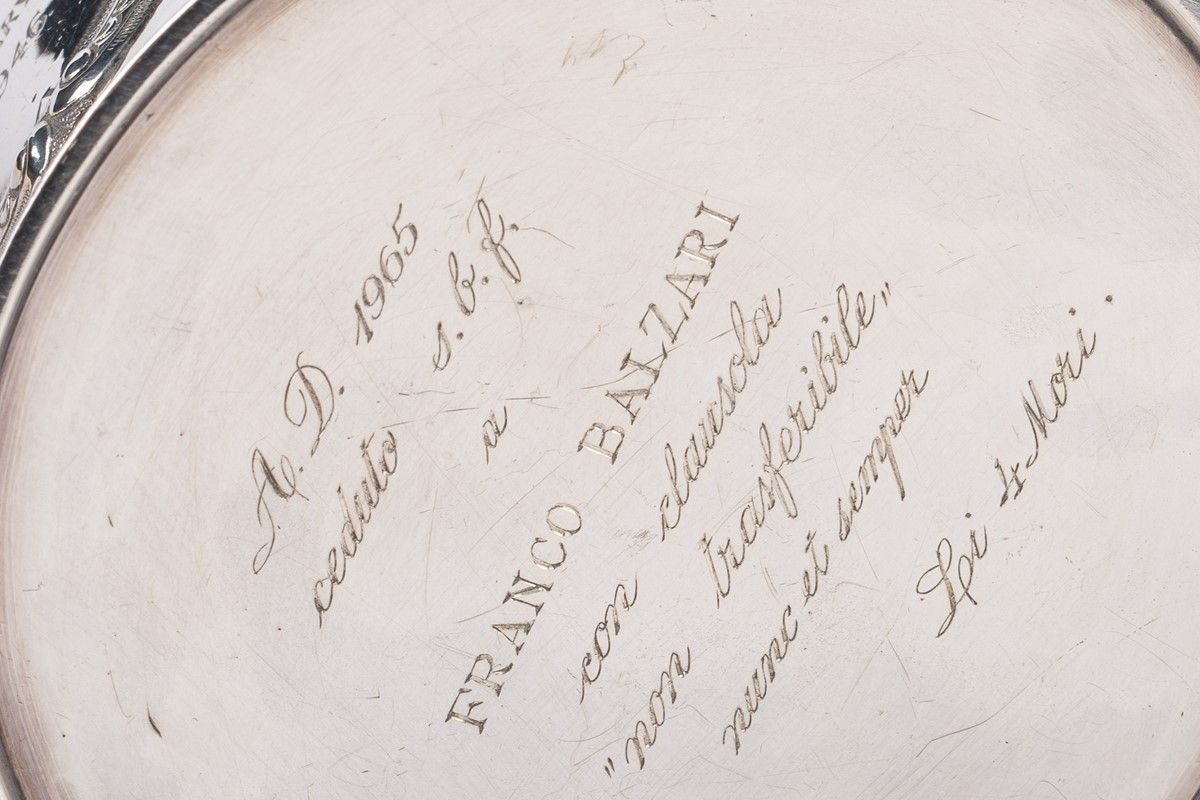 A. D. 1965
ceduto s. b. f.
a
FRANCO BALZARI
con clausola
"non trasferibile"
nunc et semper
Li 4 Mori.